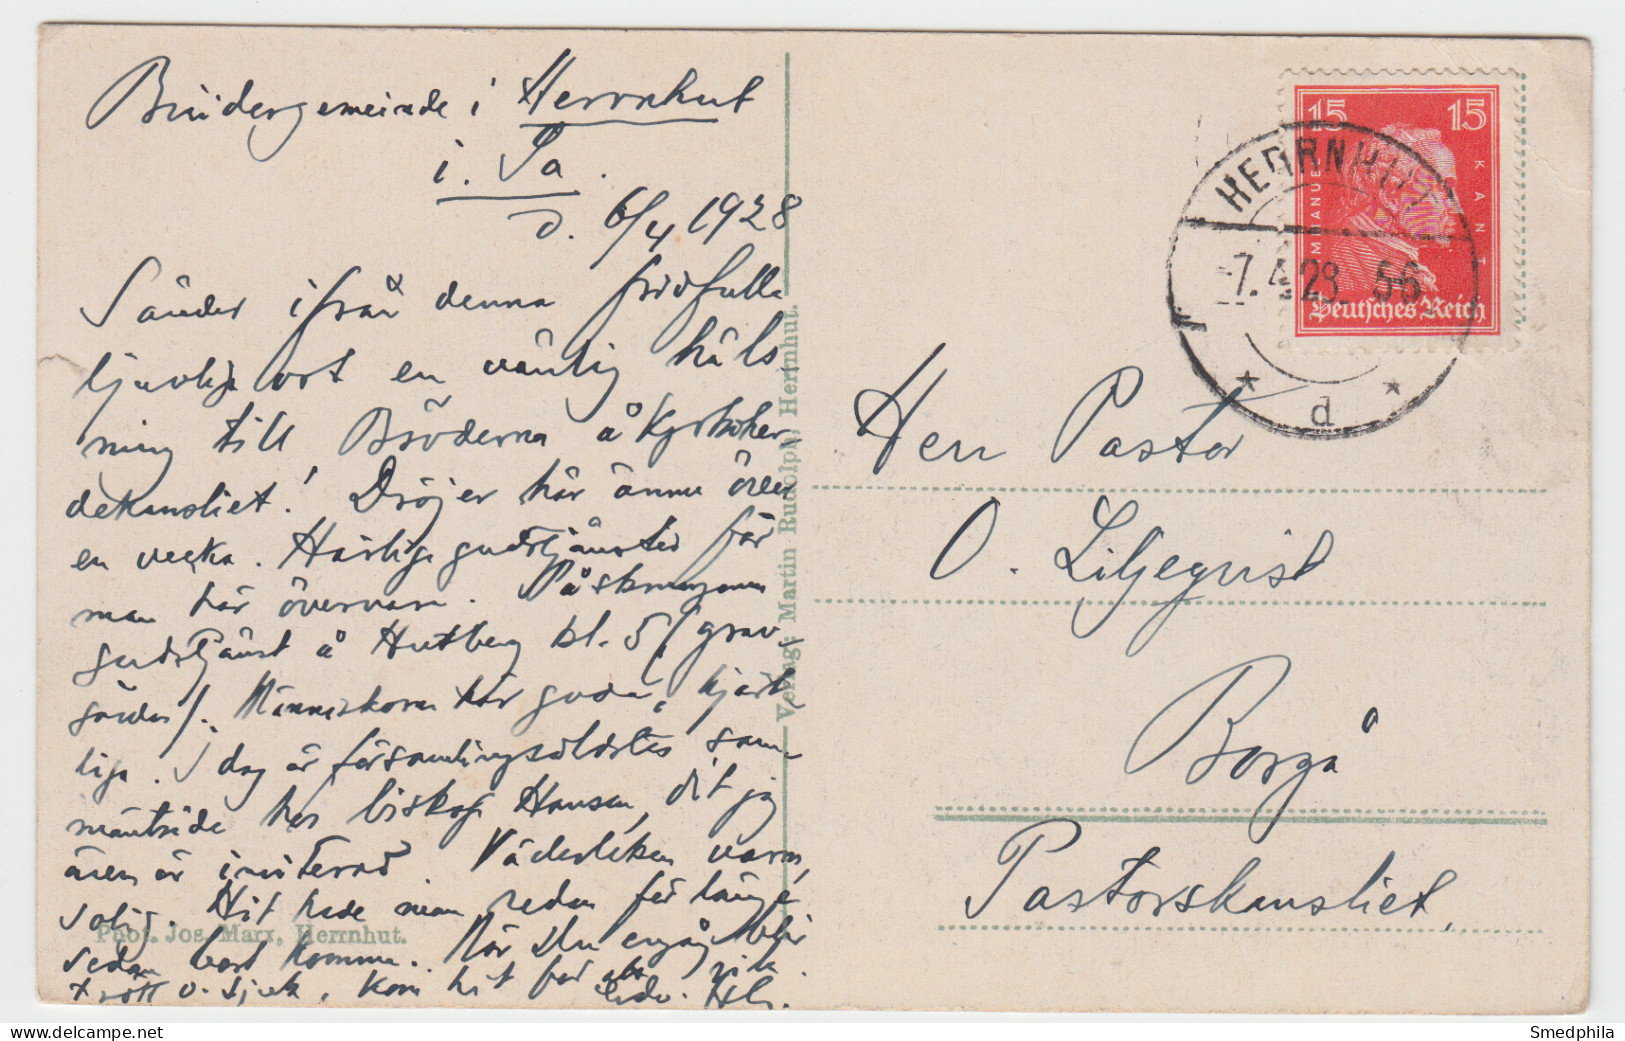 Brüdergemeinde i Herrnhut
i. Sa.
d. 6/4 1928
Sänder ifrån denna fridfulla
ljuvliga ort en vänlig häls
ning till Bröderna å Kyrkoher
dekansliet! Dröjer här ännu över
en vecka. Härliga gudstjänster får
man här övervara. Påskmorgon
gudstjänst å Hutberg kl. 5 (grav-
gården). Människorna här goda, hjärt
liga. I dag är församlingsäldstes sam-
manträde hos biskop Hansen, dit jag
även är inviterad. Väderleken varm,
solig. Hit hade man redan för länge
sedan bort komma. När Du en gång blir
trött o. sjuk, kom hit för att
Edv.
Phot. Jos. Marx, Herrnhut.
Verlag: Martin Rudolph, Herrnhut.
15 15
IMMANUEL KANT
Deutsches Reich
HERRNHUT
-7.4.28. 5-6
* d *
Herr Pastor
O. Liljeqvist
Borgå
Pastorskansliet,
Smedphila